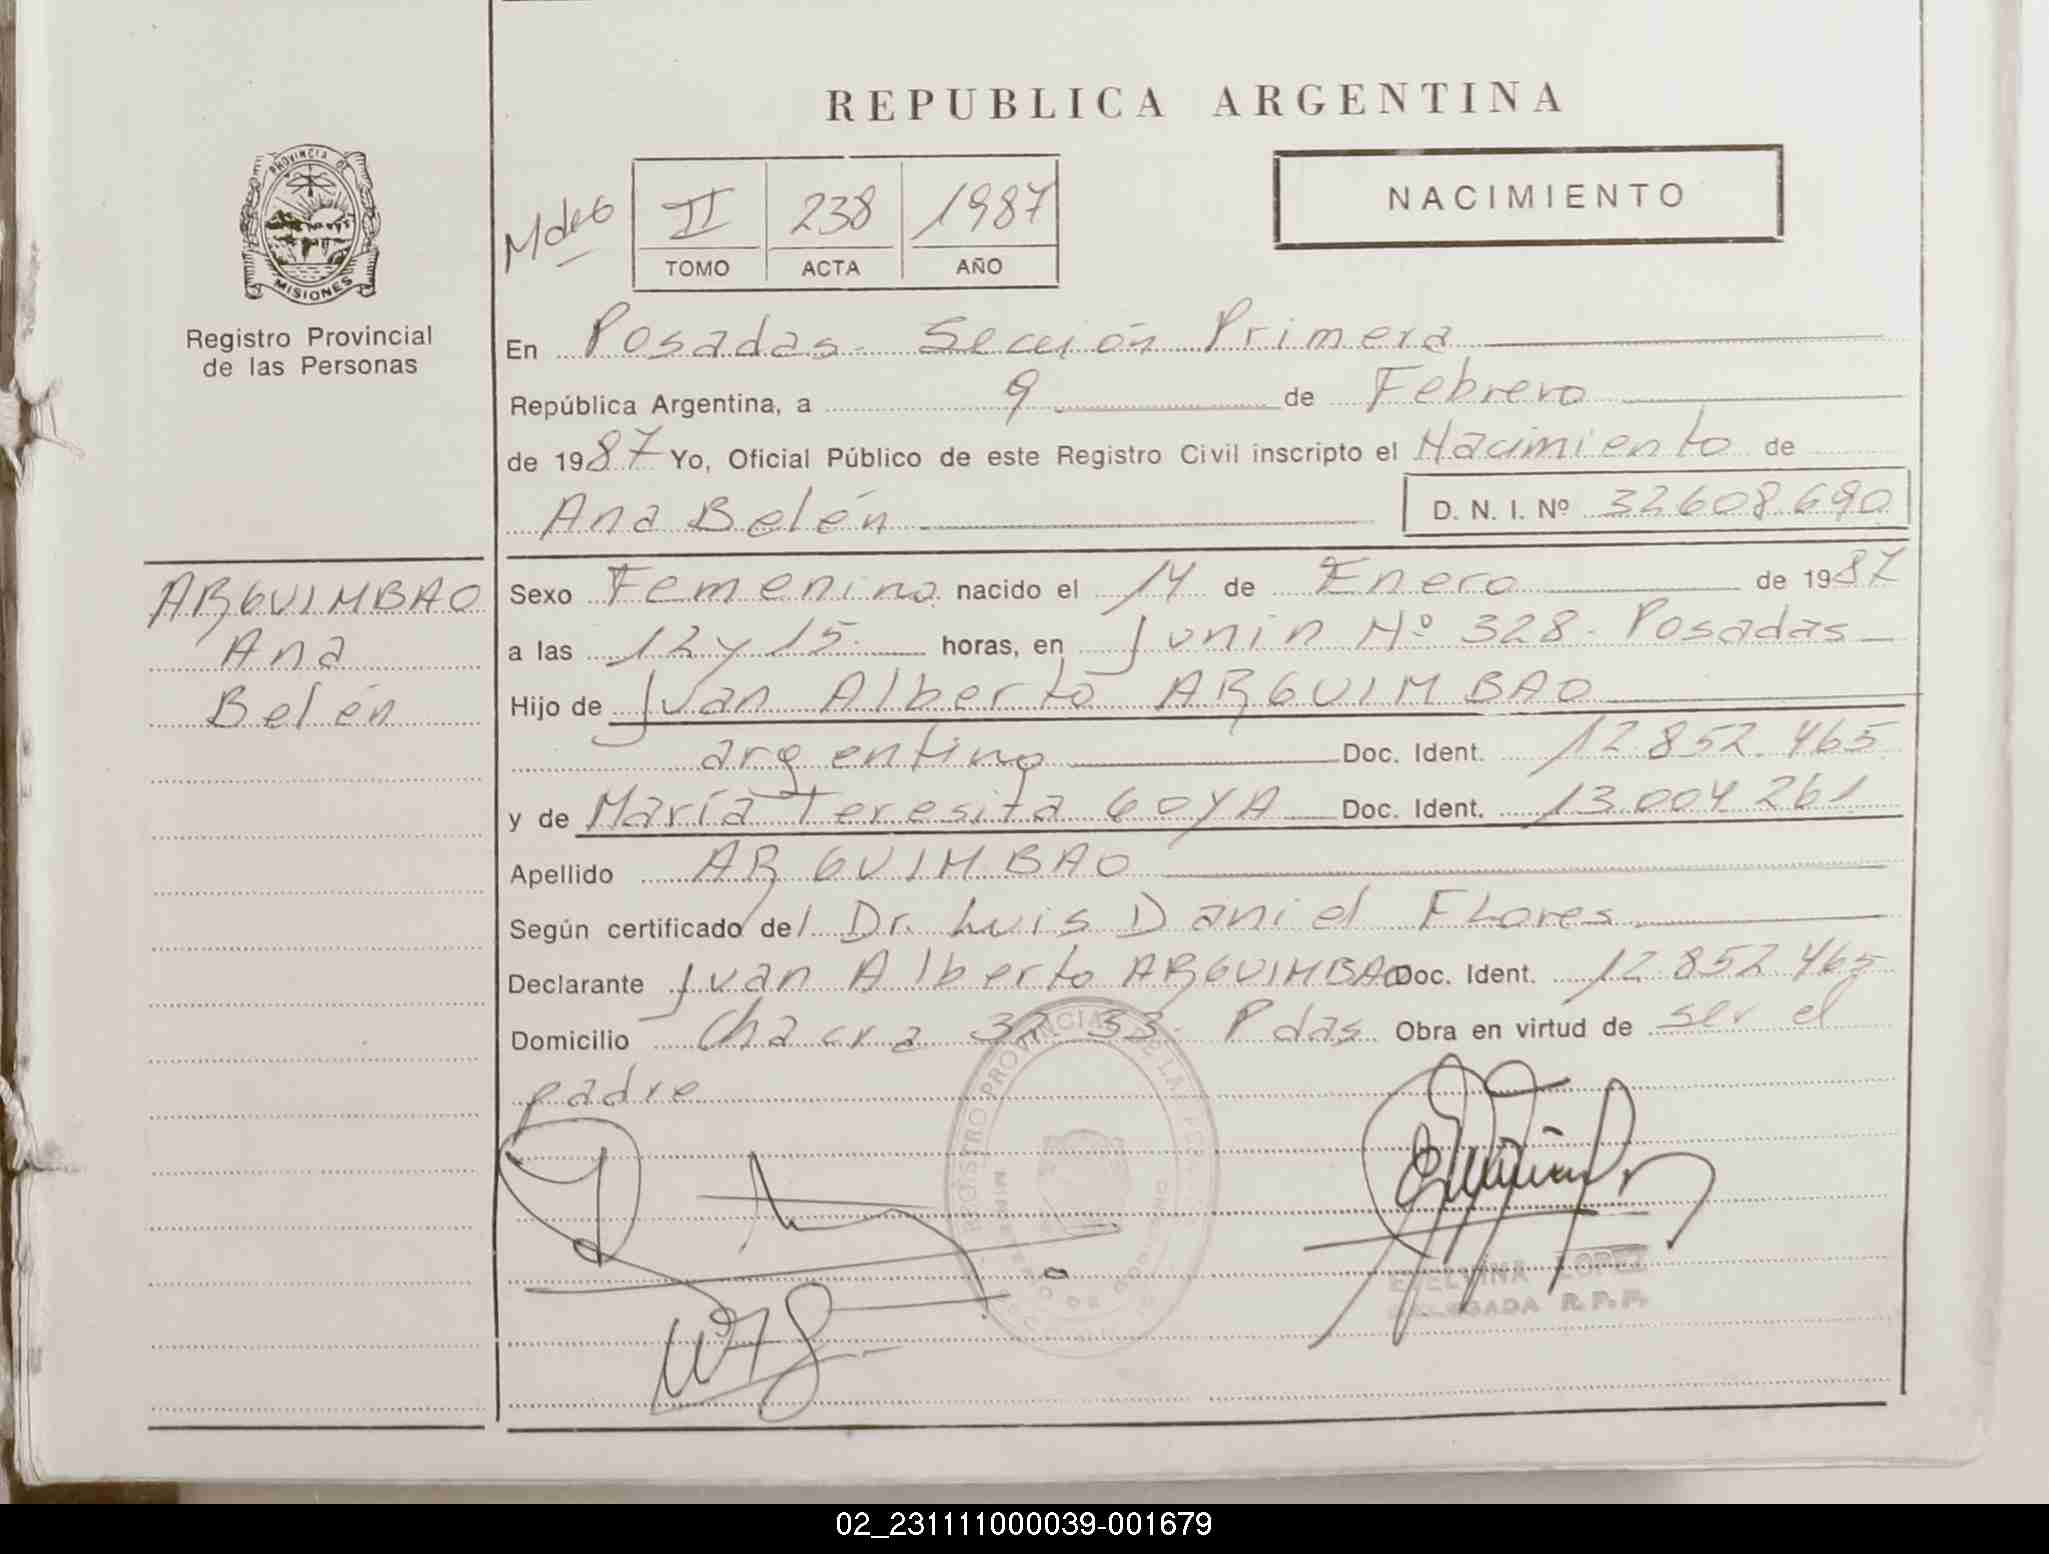 REPUBLICA ARGENTINA
PROVINCIA DE
MISIONES
Registro Provincial
de las Personas
II 238 1987
TOMO ACTA AÑO
NACIMIENTO
En Posadas- Sección Primera
República Argentina, a 9 de Febrero
de 1987 Yo, Oficial Público de este Registro Civil inscripto el Nacimiento de
Ana Belén D. N. I. Nº 32608.690
ARGUIMBAO
Ana
Belén
Sexo Femenino nacido el 14 de Enero de 1987
a las 12 y 15 horas, en Junin Nº 328- Posadas
Hijo de Juan Alberto ARGUIMBAO
argentino Doc. Ident. 12.852.465
y de María Teresita GOYA Doc. Ident. 13.004.261
Apellido ARGUIMBAO
Según certificado del Dr. Luis Daniel FLores
Declarante Juan Alberto ARGUIMBAO Doc. Ident. 12.852.465
Domicilio Chacra 32 33- Pdas Obra en virtud de ser el
padre
REGISTRO PROVINCIAL DE LAS
LOPEZ
DELEGADA R.P.P.
02_231111000039-001679